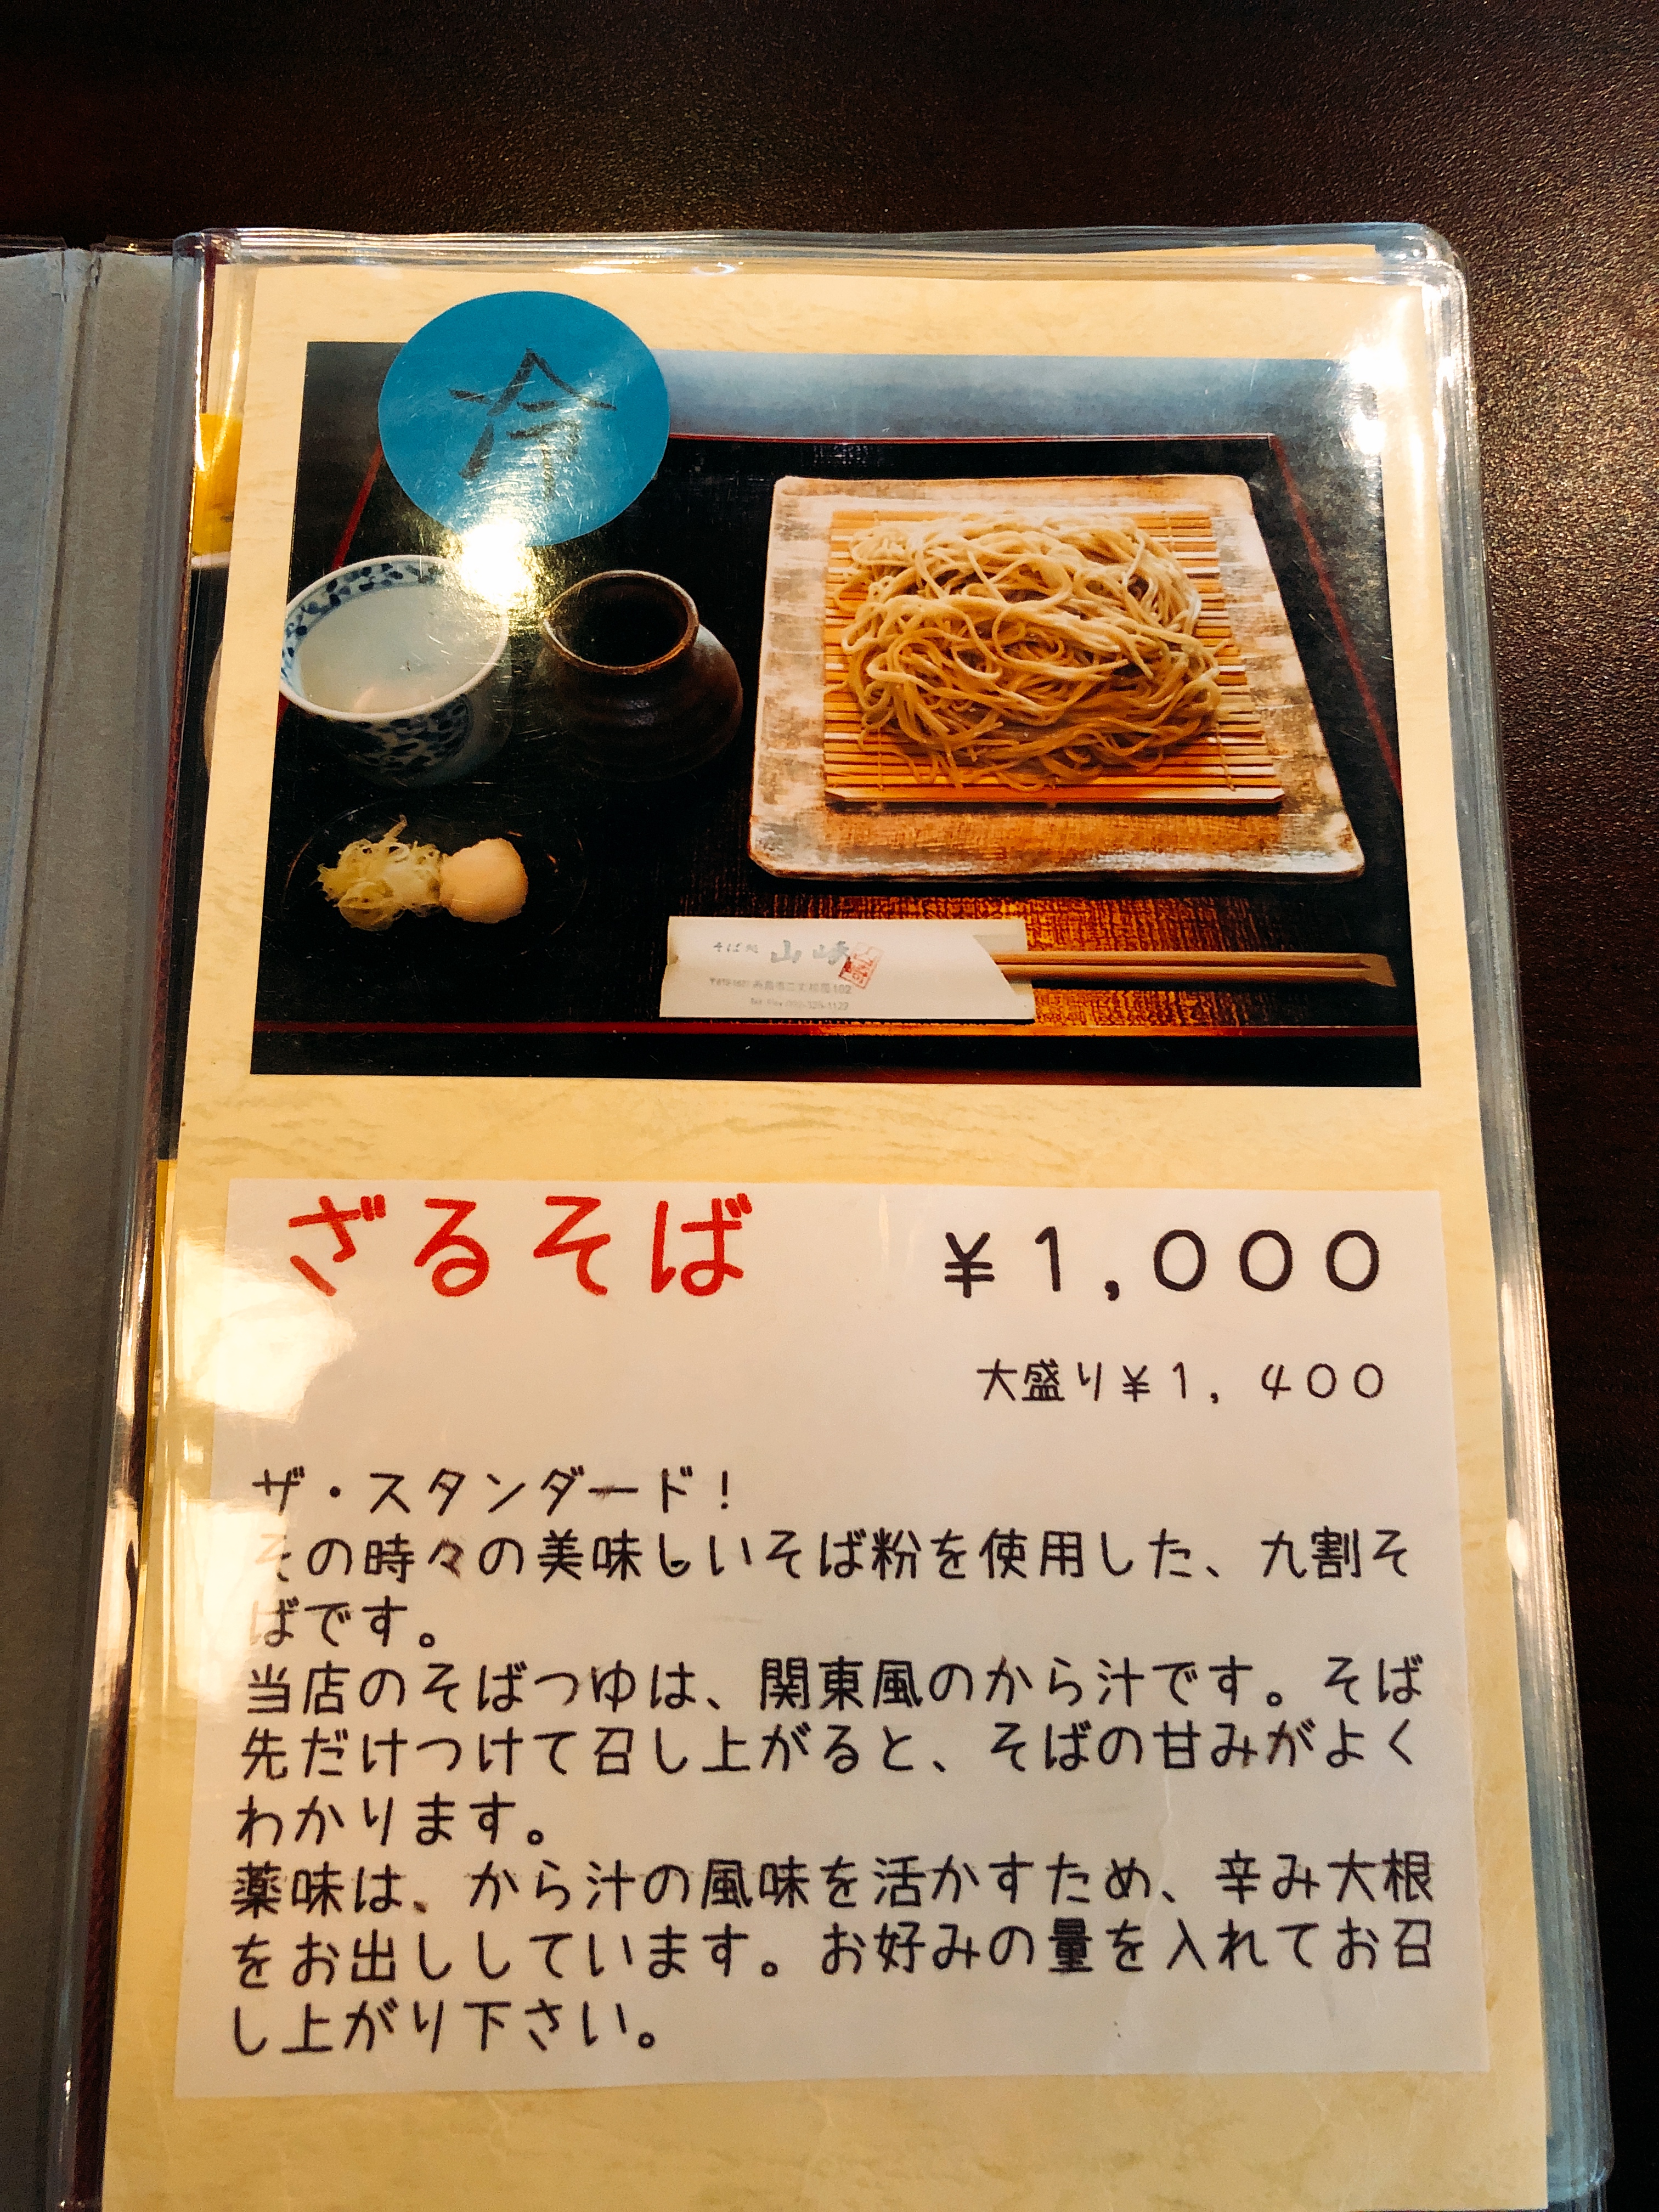 冷
そば処 山崎
ざるそば ¥1,000
大盛り¥1,400
ザ・スタンダード!
その時々の美味しいそば粉を使用した、九割そ
ばです。
当店のそばつゆは、関東風のから汁です。そば
先だけつけて召し上がると、そばの甘みがよく
わかります。
薬味は、から汁の風味を活かすため、辛み大根
をお出ししています。お好みの量を入れてお召
し上がり下さい。